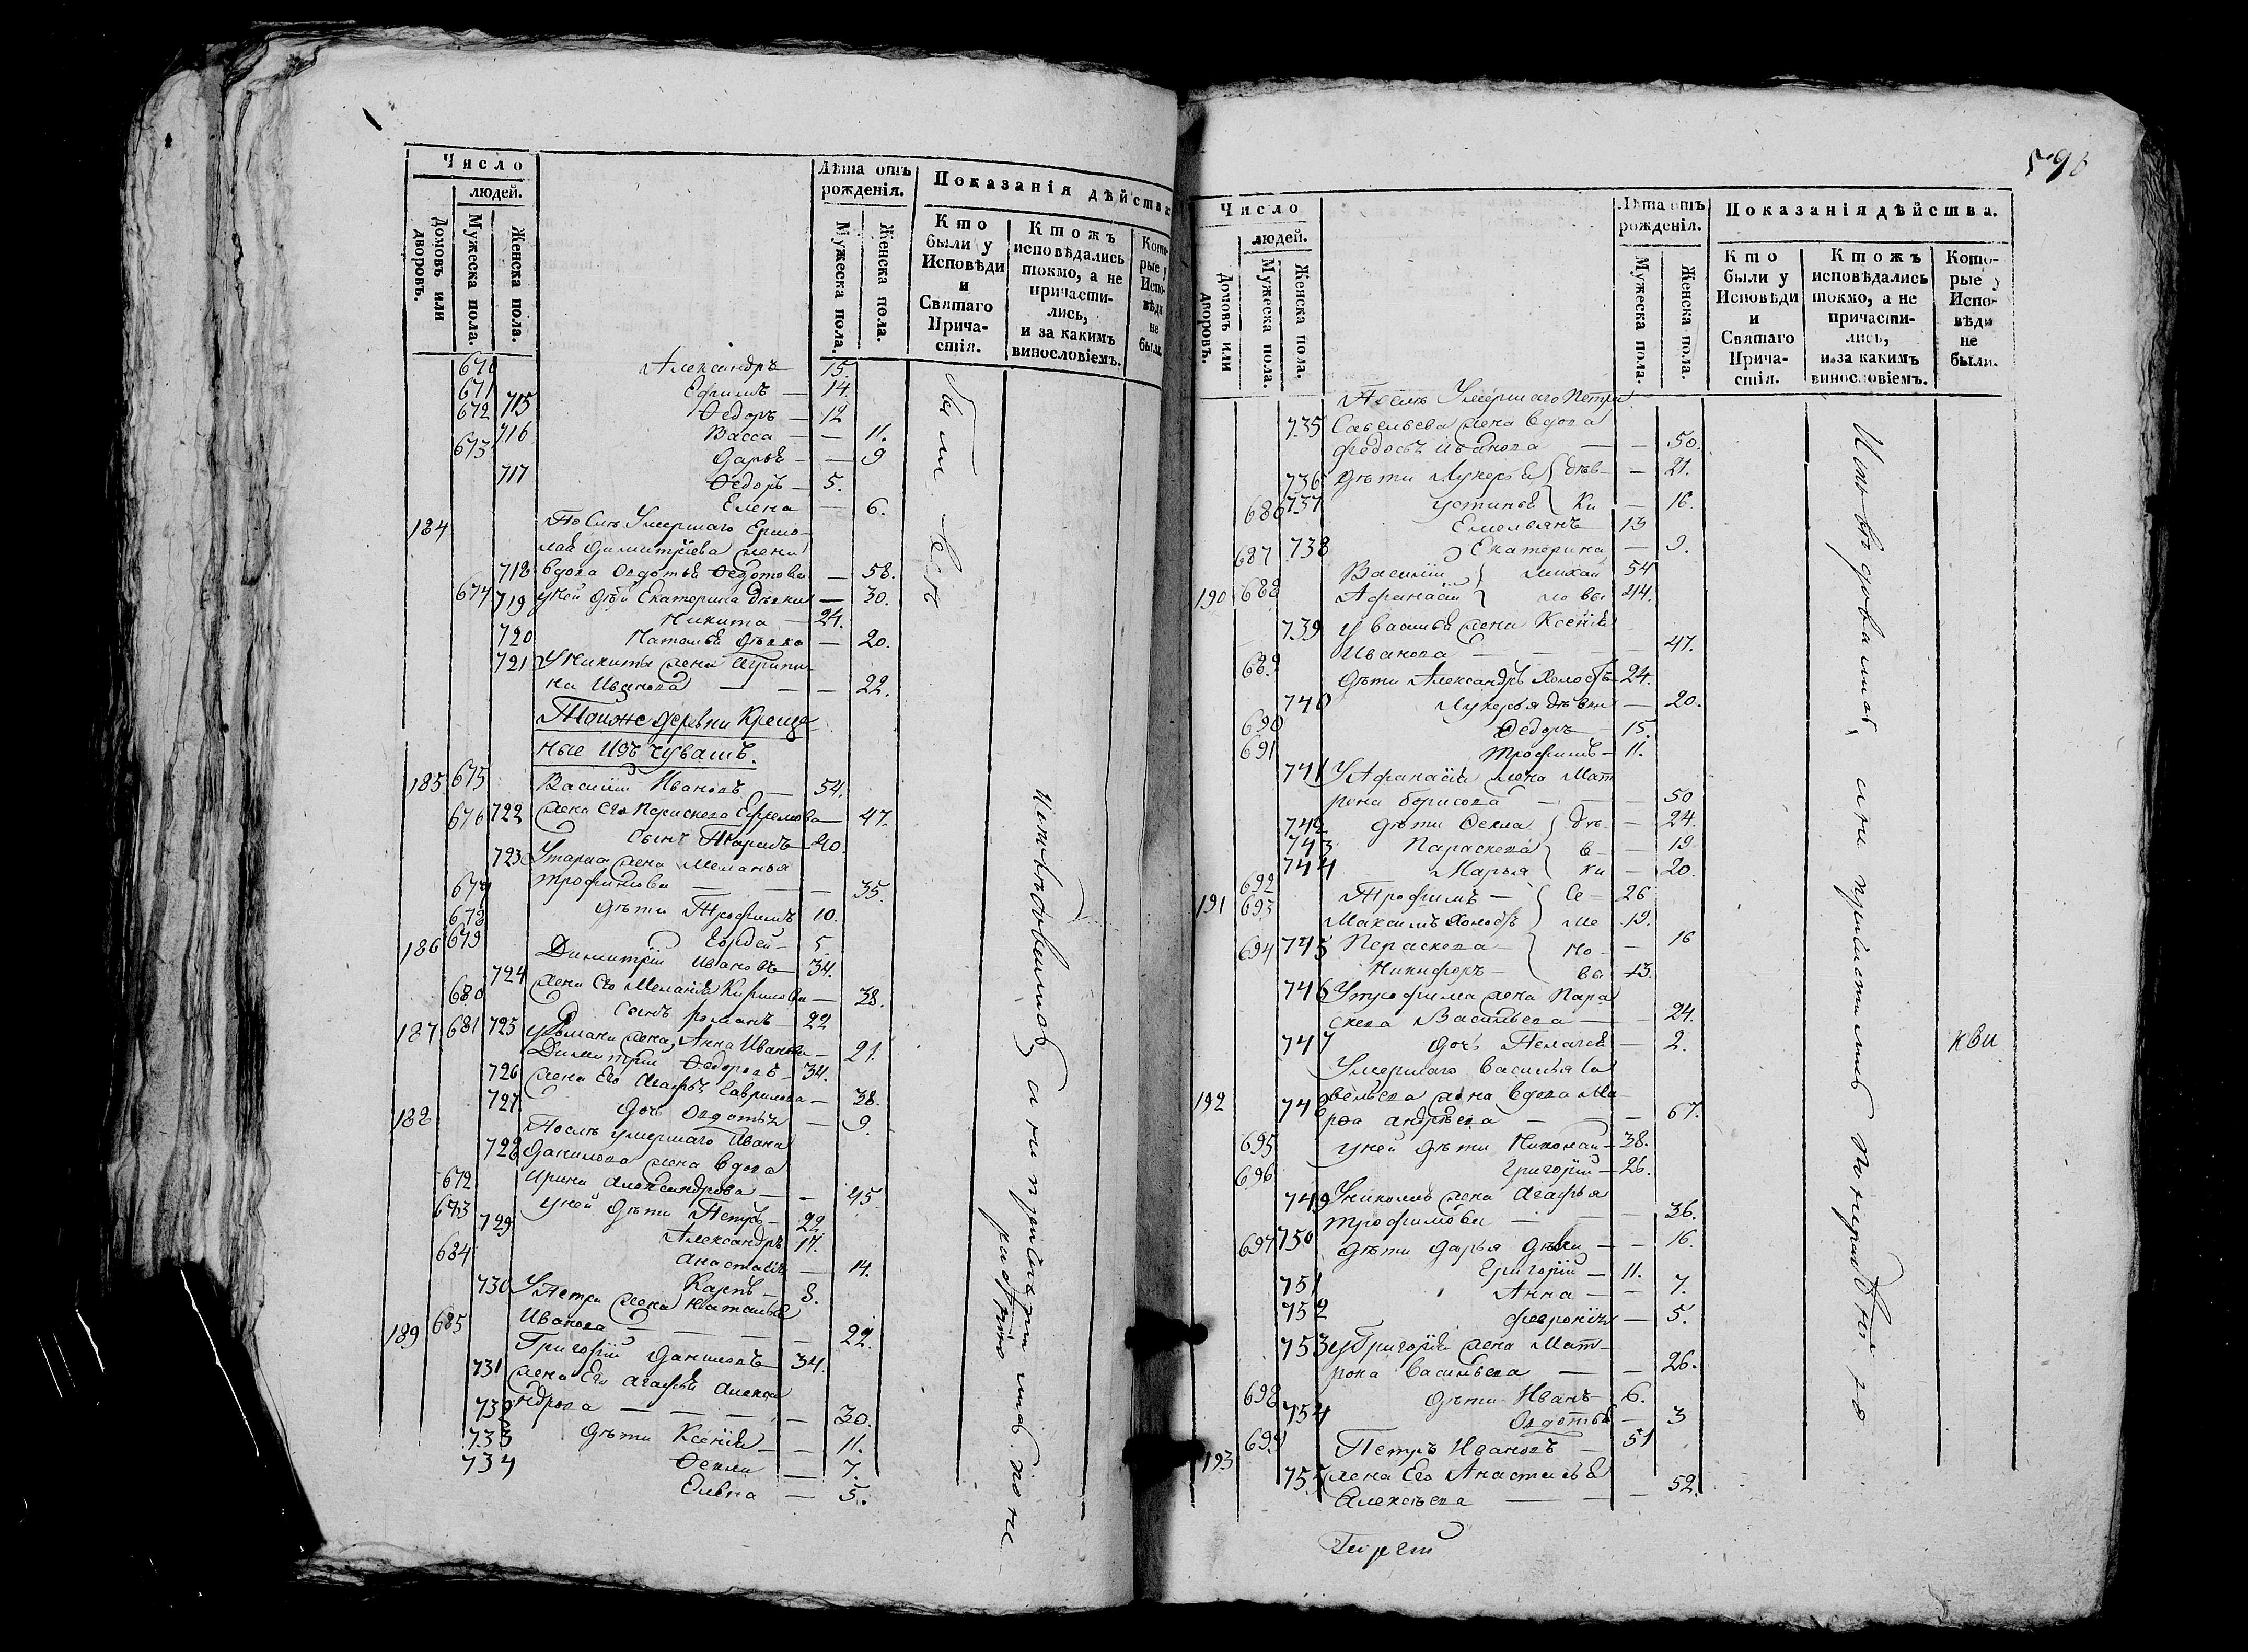 Число
людей.
Домовъ или дворовъ.
Мужеска пола.
Женска пола.
Лѣта отъ рожденія.
Мужеска пола.
Женска пола.
Показанія дѣйства.
Кто были у Исповѣди и Святаго Прича-
стія.
Ктожъ исповѣдались токмо, а не причасти-
лись, и за какимъ винословіемъ.
Кото-
рые у Испо-
вѣди не были.
670 Александръ 15.
671 Ефимъ — 14.
672 715 Ѳедоръ — 12
716 Васса — — 11.
673 Дарья — — 9
717 Ѳедоръ — 5.
Елена — 6.
184 Послѣ Умершаго Ермо-
лая Димитріева жена
718 вдова Овдотья Ѳедотова — 58.
674 719 у ней дѣти Екатерина дѣвки — 30.
Никита — 24.
720 Наталья дѣвка — 20.
721 У Никиты жена Агрипи-
на Иванова — — — 22.
Тойже деревни Креще-
ные изъ чувашъ.
185 675 Василій Ивановъ — 54.
676 722 жена Его Параскева Ефремова — 47.
Сынъ Тарасъ — 20.
723 У Тараса жена Меланья
Трофимова — — — 35.
677 дѣти Трофимъ 10.
678
186 679 5
Димитрій Ивановъ 34.
724 жена Его Меланія Кирилова — 38.
680 Сынъ романъ — 22
187 681 725 у романа жена, Анна Иванова — 21.
Димитрій Ѳедоровъ — 34.
726 жена Его Агафья Гаврилова — 38.
727 дочь Овдотья — 9.
188 Послѣ умершаго Ивана
728 Данилова жена вдова
672 Ирина Александрова — — 45
673 у ней дѣти Петръ — 22
729 Александръ 17.
684 Анастасія — 14.
730 Карпъ — 8.
У Петра жена Наталья
Иванова — — — 22.
189 685 Григорій Даниловъ 34.
731 жена Его Агафья Алекса-
732 ндрова — — — — 30.
733 дѣти Ксенія — — 11.
734 Ѳекла — 7.
Елена — 5.
Исповѣдовались, а не причастились по не
радѣнію
596
Число
людей.
Домовъ или дворовъ.
Мужеска пола.
Женска пола.
Лѣта отъ рожденія.
Мужеска пола.
Женска пола.
Показанія дѣйства.
Кто были у Исповѣди и Святаго Прича-
стія.
Ктожъ исповѣдались токмо, а не причасти-
лись, и за какимъ винословіемъ.
Кото-
рые у Испо-
вѣди не были.
Послѣ Умершаго Петра
735 Савельева жена вдова
Федосья Иванова — — 50.
736 дѣти Лукерья дѣв- — 21.
686 737 устинья ки — 16.
Емельянъ 13
687 738 Екатерина — 9.
Василій Михай 54
190 688 Афанасій ловы 44.
739 у Василья жена Ксенія
Иванова — — — 47.
689 дѣти Александръ холостъ 24.
740 Лукерья дѣвки — 20.
690 Ѳедоръ — 15.
691 Трофимъ — 11.
741 У Афанасія жена Мат
рена борисова — — — 50
742 дѣти Ѳекла дѣ — 24.
743 Параскева в — — 19
744 Марья ки — 20.
692
191 693 Трофимъ — Се = 26
Максимъ холостъ ме 19.
694 745 Параскева — но — — 16
Никифоръ — вы 13.
746 У трофима жена Пара
скева Васильева — — 24.
747 дочь Пелагея — 2.
Умершаго Василья Са
192 748 вельева жена вдова Ма-
рѳа андрѣева — — — 67.
695 у ней дѣти Николай — 38.
696 Григорій — 26.
749 У николая жена Агафья
трофимова — — — 36.
697 750 дѣти дарья дѣвки — — 16.
Григорій — 11.
751 Анна — — 7.
752 февронія — 5.
753 у Григорія жена Мат-
рона Васильева — — 26.
698 дѣти Иванъ 6.
754 Овдотья — 3
699 Петръ Ивановъ — 51
193
755 жена Его Анастасья
Алексѣева — — — 52.
Исповѣдовались, а не причастились